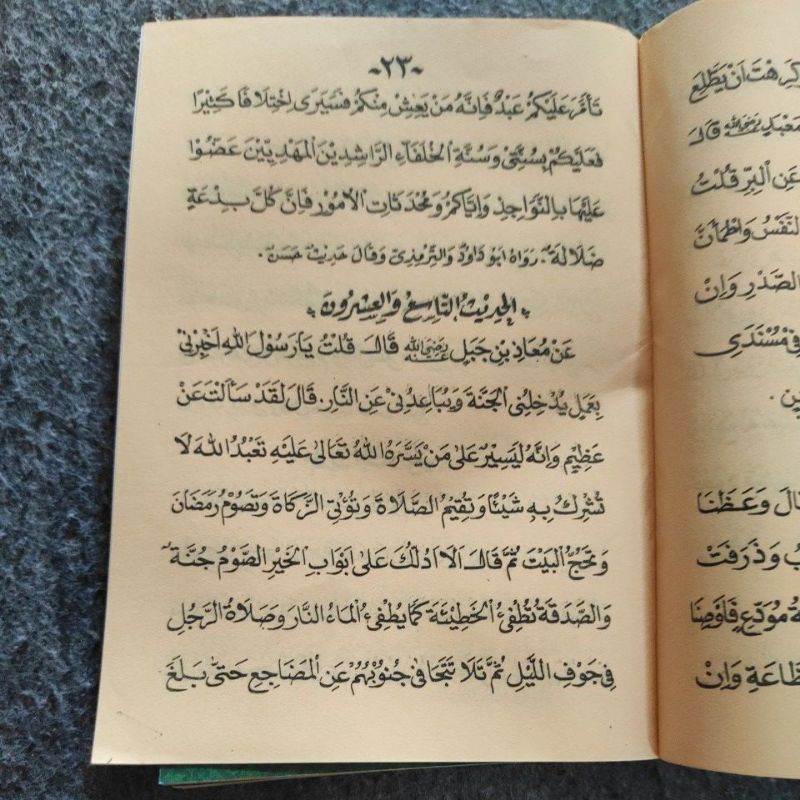 -٢٣-
تَأَمَّرَ عَلَيْكُمْ عَبْدٌ فَإِنَّهُ مَنْ يَعِشْ مِنْكُمْ فَسَيَرَى اخْتِلَافًا كَثِيْرًا
فَعَلَيْكُمْ بِسُنَّتِيْ وَسُنَّةِ الْخُلَفَاءِ الرَّاشِدِيْنَ الْمَهْدِيِّيْنَ عَضُّوْا
عَلَيْهَا بِالنَّوَاجِذِ وَإِيَّاكُمْ وَمُحْدَثَاتِ الْأُمُوْرِ فَإِنَّ كُلَّ بِدْعَةٍ
ضَلَالَةٌ. رَوَاهُ أَبُوْ دَاوُدَ وَالتِّرْمِذِيُّ وَقَالَ حَدِيْثٌ حَسَنٌ.
الْحَدِيْثُ التَّاسِعُ وَالْعِشْرُوْنَ
عَنْ مُعَاذِ بْنِ جَبَلٍ رَضِيَ اللهُ عَنْهُ قَالَ قُلْتُ يَارَسُوْلَ اللهِ أَخْبِرْنِيْ
بِعَمَلٍ يُدْخِلُنِي الْجَنَّةَ وَيُبَاعِدُنِيْ عَنِ النَّارِ. قَالَ لَقَدْ سَأَلْتَ عَنْ
عَظِيْمٍ وَإِنَّهُ لَيَسِيْرٌ عَلَى مَنْ يَسَّرَهُ اللهُ تَعَالَى عَلَيْهِ تَعْبُدُ اللهَ لَا
تُشْرِكُ بِهِ شَيْئًا وَتُقِيْمُ الصَّلَاةَ وَتُؤْتِي الزَّكَاةَ وَتَصُوْمُ رَمَضَانَ
وَتَحُجُّ الْبَيْتَ ثُمَّ قَالَ أَلَا أَدُلُّكَ عَلَى أَبْوَابِ الْخَيْرِ الصَّوْمُ جُنَّةٌ
وَالصَّدَقَةُ تُطْفِئُ الْخَطِيْئَةَ كَمَا يُطْفِئُ الْمَاءُ النَّارَ وَصَلَاةُ الرَّجُلِ
فِيْ جَوْفِ اللَّيْلِ ثُمَّ تَلَا تَتَجَافَى جُنُوْبُهُمْ عَنِ الْمَضَاجِعِ حَتَّى بَلَغَ
كَرِهْتَ أَنْ يَطَّلِعَ
مَعْبَدٍ رَضِيَ اللهُ عَنْهُ قَالَ
عَنِ الْبِرِّ قُلْتُ
النَّفْسُ وَاطْمَأَنَّ
الصَّدْرِ وَإِنْ
فِيْ مُسْنَدَيِ
قَالَ وَعَظَنَا
وَذَرَفَتْ
مُوَدِّعٍ فَأَوْصِنَا
الطَّاعَةِ وَإِنْ